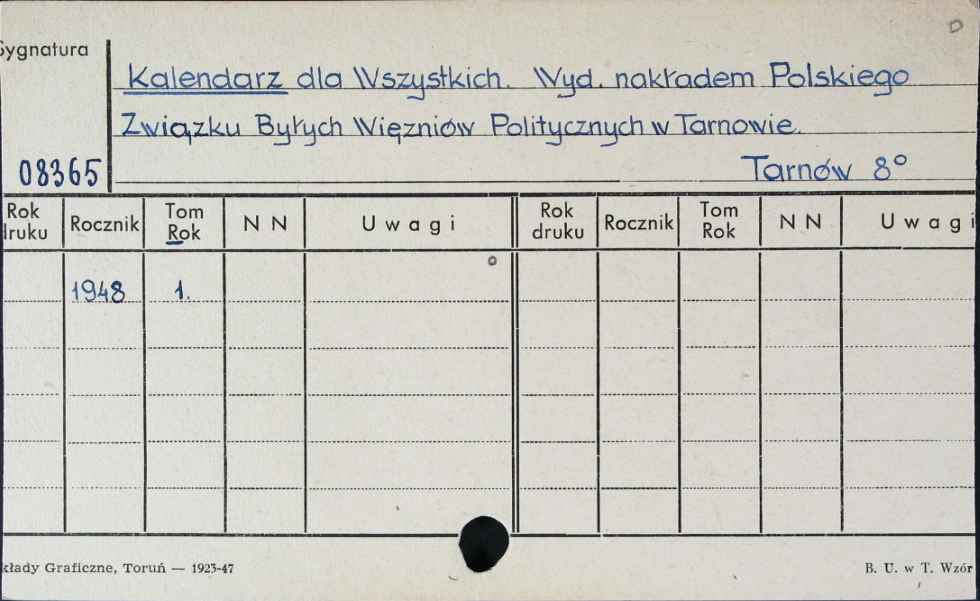 Sygnatura
Kalendarz dla Wszystkich. Wyd. nakładem Polskiego
Związku Byłych Więzniów Politycznych w Tarnowie.
08365
Tarnów 8°
Rok druku Rocznik Tom Rok N N Uwagi Rok druku Rocznik Tom Rok N N Uwagi
1948 1.
kłady Graficzne, Toruń — 1923-47 B. U. w T. Wzór